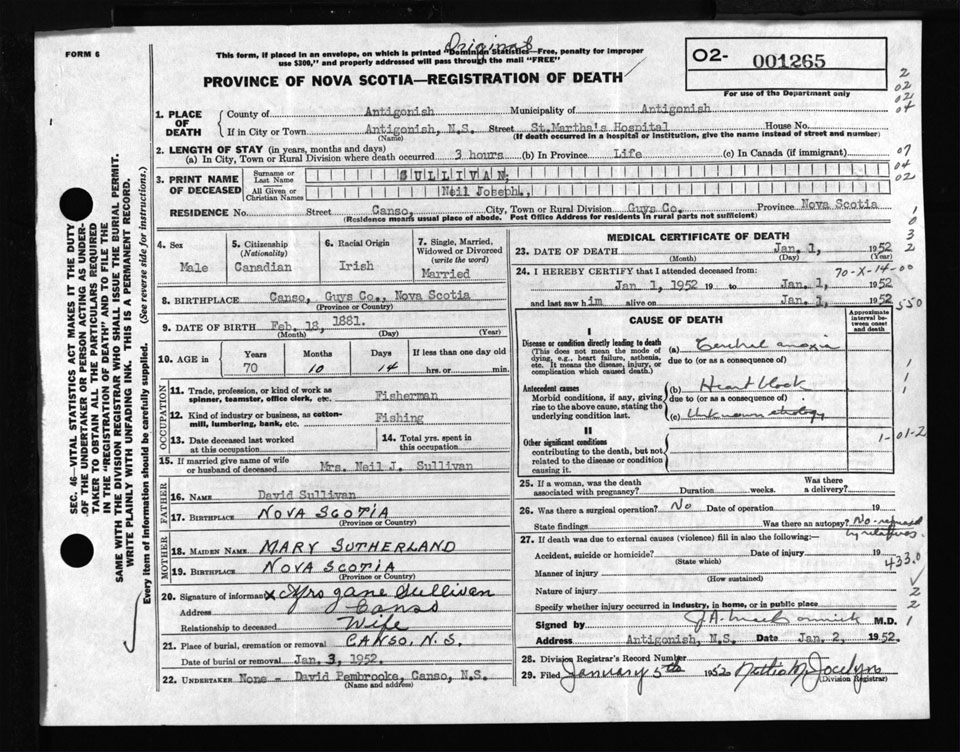 FORM 6
Original
This form, if placed in an envelope, on which is printed "Dominion Statistics—Free, penalty for improper
use $300," and properly addressed will pass through the mail "FREE"
PROVINCE OF NOVA SCOTIA—REGISTRATION OF DEATH
O2- 001265
For use of the Department only
2
02
02
04
1. PLACE OF DEATH
County of Antigonish Municipality of Antigonish
If in City or Town Antigonish, N.S. Street St.Martha's Hospital House No.
(Name) (If death occurred in a hospital or institution, give the name instead of street and number)
2. LENGTH OF STAY (in years, months and days)
(a) In City, Town or Rural Division where death occurred 3 hours (b) In Province Life (c) In Canada (if immigrant)
07
04
02
3. PRINT NAME OF DECEASED
Surname or Last Name SULLIVAN,
All Given or Christian Names Neil Joseph.,
RESIDENCE No. Street Canso, City, Town or Rural Division Guys Co., Province Nova Scotia
(Residence means usual place of abode. Post Office Address for residents in rural parts not sufficient)
1
0
3
2
4. Sex
Male
5. Citizenship (Nationality)
Canadian
6. Racial Origin
Irish
7. Single, Married, Widowed or Divorced (write the word)
Married
8. BIRTHPLACE Canso, Guys Co., Nova Scotia
(Province or Country)
9. DATE OF BIRTH Feb. 18, 1881.
(Month) (Day) (Year)
10. AGE in
Years Months Days If less than one day old
70 10 14 hrs. or min.
OCCUPATION
11. Trade, profession, or kind of work as spinner, teamster, office clerk, etc. Fisherman
12. Kind of industry or business, as cotton-mill, lumbering, bank, etc. Fishing
13. Date deceased last worked at this occupation
14. Total yrs. spent in this occupation
15. If married give name of wife or husband of deceased Mrs. Neil J. Sullivan
FATHER
16. NAME David Sullivan
17. BIRTHPLACE NOVA SCOTIA
(Province or Country)
MOTHER
18. MAIDEN NAME MARY SUTHERLAND
19. BIRTHPLACE NOVA SCOTIA
(Province or Country)
20. Signature of informant X Mrs Jane Sullivan
Address Canso
Relationship to deceased Wife
21. Place of burial, cremation or removal CANSO, N.S.
Date of burial or removal Jan. 3, 1952.
22. UNDERTAKER None - David Pembrooke, Canso, N.S.
(Name and address)
MEDICAL CERTIFICATE OF DEATH
23. DATE OF DEATH Jan. 1, 1952
(Month) (Day) (Year)
24. I HEREBY CERTIFY that I attended deceased from: 70-X-14-00
Jan. 1, 1952 19 to Jan. 1, 1952
and last saw him alive on Jan. 1, 1952
550
CAUSE OF DEATH
Approximate interval between onset and death
I
Disease or condition directly leading to death (a) Cerebral anoxia
(This does not mean the mode of dying, e.g., heart failure, asthenia, etc. It means the disease, injury, or complication which caused death.)
due to (or as a consequence of)
Antecedent causes (b) Heart block
Morbid conditions, if any, giving rise to the above cause, stating the underlying condition last.
due to (or as a consequence of)
(c) Unknown etiology
1
1
1
II
Other significant conditions contributing to the death, but not related to the disease or condition causing it.
1-01-2
25. If a woman, was the death associated with pregnancy? Duration weeks. Was there a delivery?
26. Was there a surgical operation? No Date of operation 19
State findings Was there an autopsy? No - refused by relatives.
27. If death was due to external causes (violence) fill in also the following:—
Accident, suicide or homicide? Date of injury 19
(State which)
433.0
Manner of injury
(How sustained)
Nature of injury 2
Specify whether injury occurred in industry, in home, or in public place 2
Signed by J.A. MacCormick M.D. 1
Address Antigonish, N.S. Date Jan. 2, 1952.
28. Division Registrar's Record Number
29. Filed January 5th 1952 Nettie M. Jocelyn
(Division Registrar)
SEC. 46—VITAL STATISTICS ACT MAKES IT THE DUTY
OF THE UNDERTAKER OR PERSON ACTING AS UNDER-
TAKER TO OBTAIN ALL THE PARTICULARS REQUIRED
IN THE "REGISTRATION OF DEATH" AND TO FILE THE
SAME WITH THE DIVISION REGISTRAR WHO SHALL ISSUE THE BURIAL PERMIT.
WRITE PLAINLY WITH UNFADING INK. THIS IS A PERMANENT RECORD.
Every item of information should be carefully supplied. (See reverse side for instructions.)